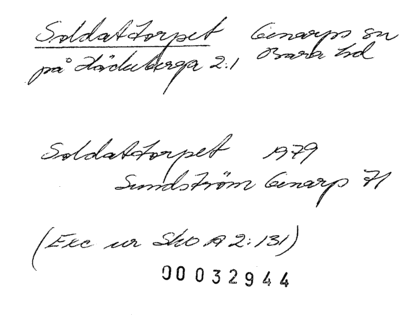 Soldattorpet Genarps sn
på Häckeberga 2:1 Bara hd
Soldattorpet 1979
Sundström Genarp 71
(Exc ur SkO A 2:131)
00032944